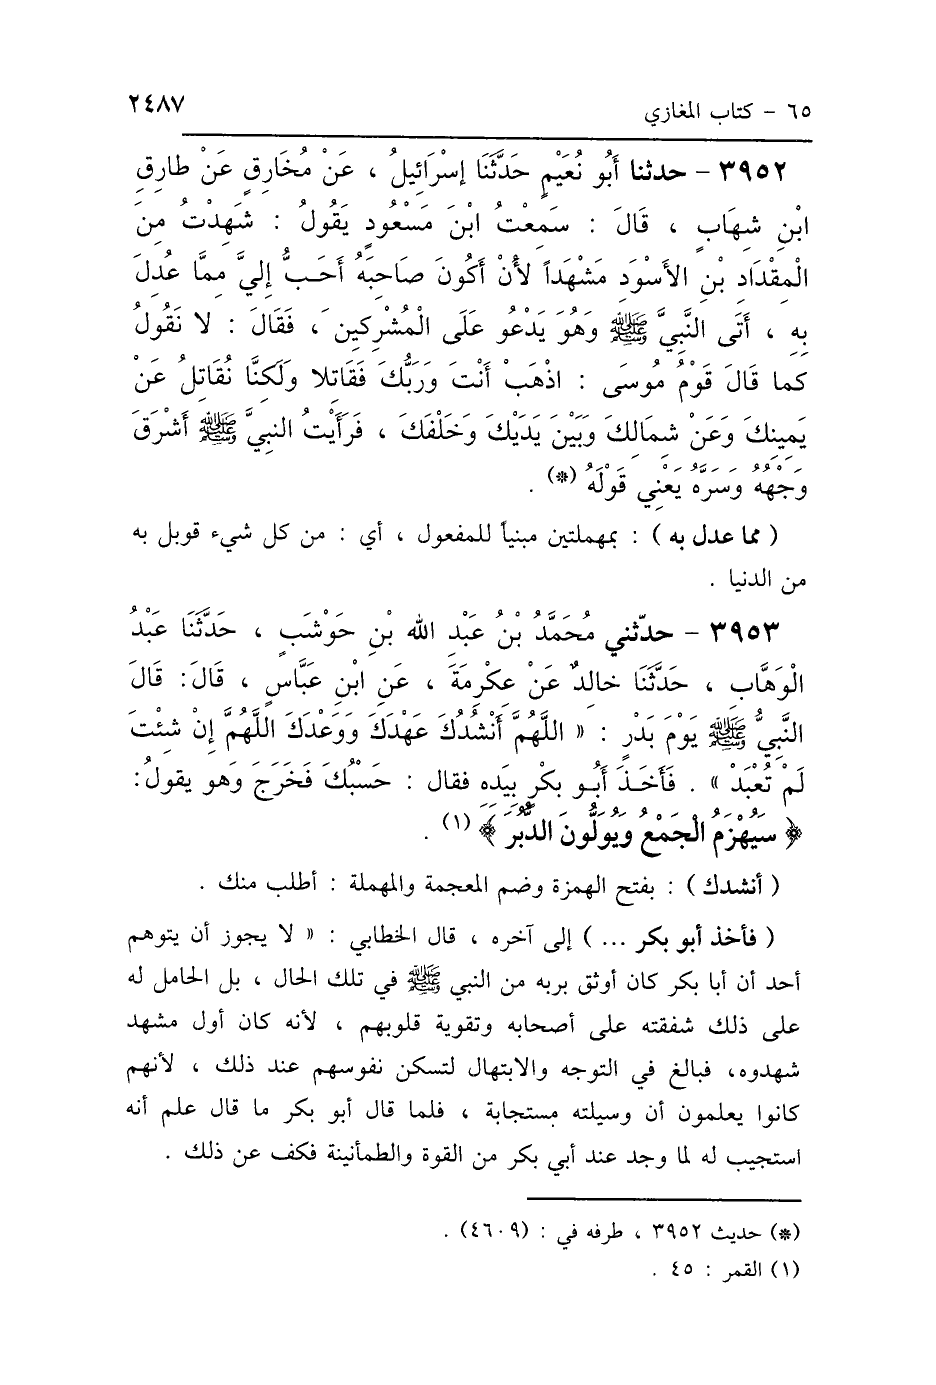 ٦٥ - كتاب المغازي ٢٤٨٧
٣٩٥٢ - حدثنا أَبُو نُعَيْمٍ حَدَّثَنَا إسْرَائِيلُ ، عَنْ مُخَارِقٍ عَنْ طارِقِ
ابْنِ شِهَابٍ ، قَالَ : سَمِعْتُ ابْنَ مَسْعُودٍ يَقُولُ : شَهِدْتُ مِنَ
الْمِقْدَادِ بْنِ الأَسْوَدِ مَشْهَداً لأَنْ أَكُونَ صَاحِبَهُ أَحَبُّ إلِيَّ مِمَّا عُدِلَ
بِهِ ، أَتَى النَّبِيَّ ﷺ وَهُوَ يَدْعُو عَلَى الْمُشْرِكِينَ ، فَقَالَ : لا نَقُولُ
كما قَالَ قَوْمُ مُوسَى : اذْهَبْ أَنْتَ وَرَبُّكَ فَقَاتِلا ولَكِنَّا نُقَاتِلُ عَنْ
يَمِينِكَ وَعَنْ شِمَالِكَ وَبَيْنَ يَدَيْكَ وَخَلْفَكَ ، فَرَأَيْتُ النبِيَّ ﷺ أَشْرَقَ
وَجْهُهُ وَسَرَّهُ يَعْنِي قَوْلَهُ (*) .
( مما عدل به ) : بمهملتين مبنياً للمفعول ، أي : من كل شيء قوبل به
من الدنيا .
٣٩٥٣ - حدّثني مُحَمَّدُ بْنُ عَبْدِ الله بْنِ حَوْشَبٍ ، حَدَّثَنَا عَبْدُ
الْوَهَّابِ ، حَدَّثَنَا خالِدٌ عَنْ عِكْرِمَةَ ، عَنِ ابْنِ عَبَّاسٍ ، قَالَ: قَالَ
النَّبِيُّ ﷺ يَوْمَ بَدْرٍ : « اللَّهُمَّ أَنْشُدُكَ عَهْدَكَ وَوَعْدَكَ اللَّهُمَّ إِنْ شِئْتَ
لَمْ تُعْبَدْ » . فَأَخَذَ أَبُو بكْرٍ بِيَدِهِ فقال : حَسْبُكَ فَخَرَجَ وَهو يقولُ:
﴿ سَيُهْزَمُ الْجَمْعُ وَيُوَلُّونَ الدُّبُرَ ﴾ (١) .
( أنشدك ) : بفتح الهمزة وضم المعجمة والمهملة : أطلب منك .
( فأخذ أبو بكر ... ) إلى آخره ، قال الخطابي : « لا يجوز أن يتوهم
أحد أن أبا بكر كان أوثق بربه من النبي ﷺ في تلك الحال ، بل الحامل له
على ذلك شفقته على أصحابه وتقوية قلوبهم ، لأنه كان أول مشهد
شهدوه، فبالغ في التوجه والابتهال لتسكن نفوسهم عند ذلك ، لأنهم
كانوا يعلمون أن وسيلته مستجابة ، فلما قال أبو بكر ما قال علم أنه
استجيب له لما وجد عند أبي بكر من القوة والطمأنينة فكف عن ذلك .
(*) حديث ٣٩٥٢ ، طرفه في : (٤٦٠٩) .
(١) القمر : ٤٥ .